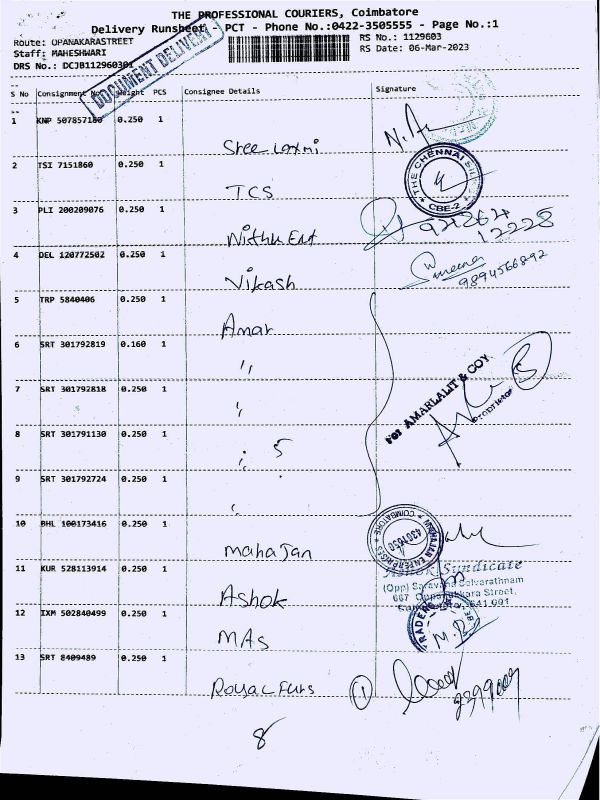 THE PROFESSIONAL COURIERS, Coimbatore
Delivery Runsheet PCT - Phone No.:0422-3505555 - Page No.:1
Route: OPANAKARASTREET
Staff: MAHESHWARI
DRS No.: DCJB112960301
RS No.: 1129603
RS Date: 06-Mar-2023
DOCUMENT DELIVERY
S No Consignment No Weight PCS Consignee Details Signature
1 KNP 507857180 0.250 1
Sree Laxmi
2 TSI 7151860 0.250 1
TCS
THE CHENNAI
CBE-2
3 PLI 200209076 0.250 1
Nithu Ent
94264
12228
4 DEL 120772502 0.250 1
Vikash
Sumeena
9894566892
5 TRP 5840406 0.250 1
Amar
6 SRT 301792819 0.160 1
"
7 SRT 301792818 0.250 1
"
For AMARLALIT & COY
Proprietor
5
8 SRT 301791130 0.250 1
" 5
9 SRT 301792724 0.250 1
"
10 BHL 100173416 0.250 1
Mahajan
MAHAJAN ENTERPRISES
COIMBATORE
4301650
11 KUR 528113914 0.250 1
Ashok
Ashok Syndicate
(Opp) Saravana Selvarathnam
667 Oppanakkara Street,
641 001
12 IXM 502840499 0.250 1
MAs
TRADERS
13 SRT 8409489 0.250 1
Royal Furs 1
8